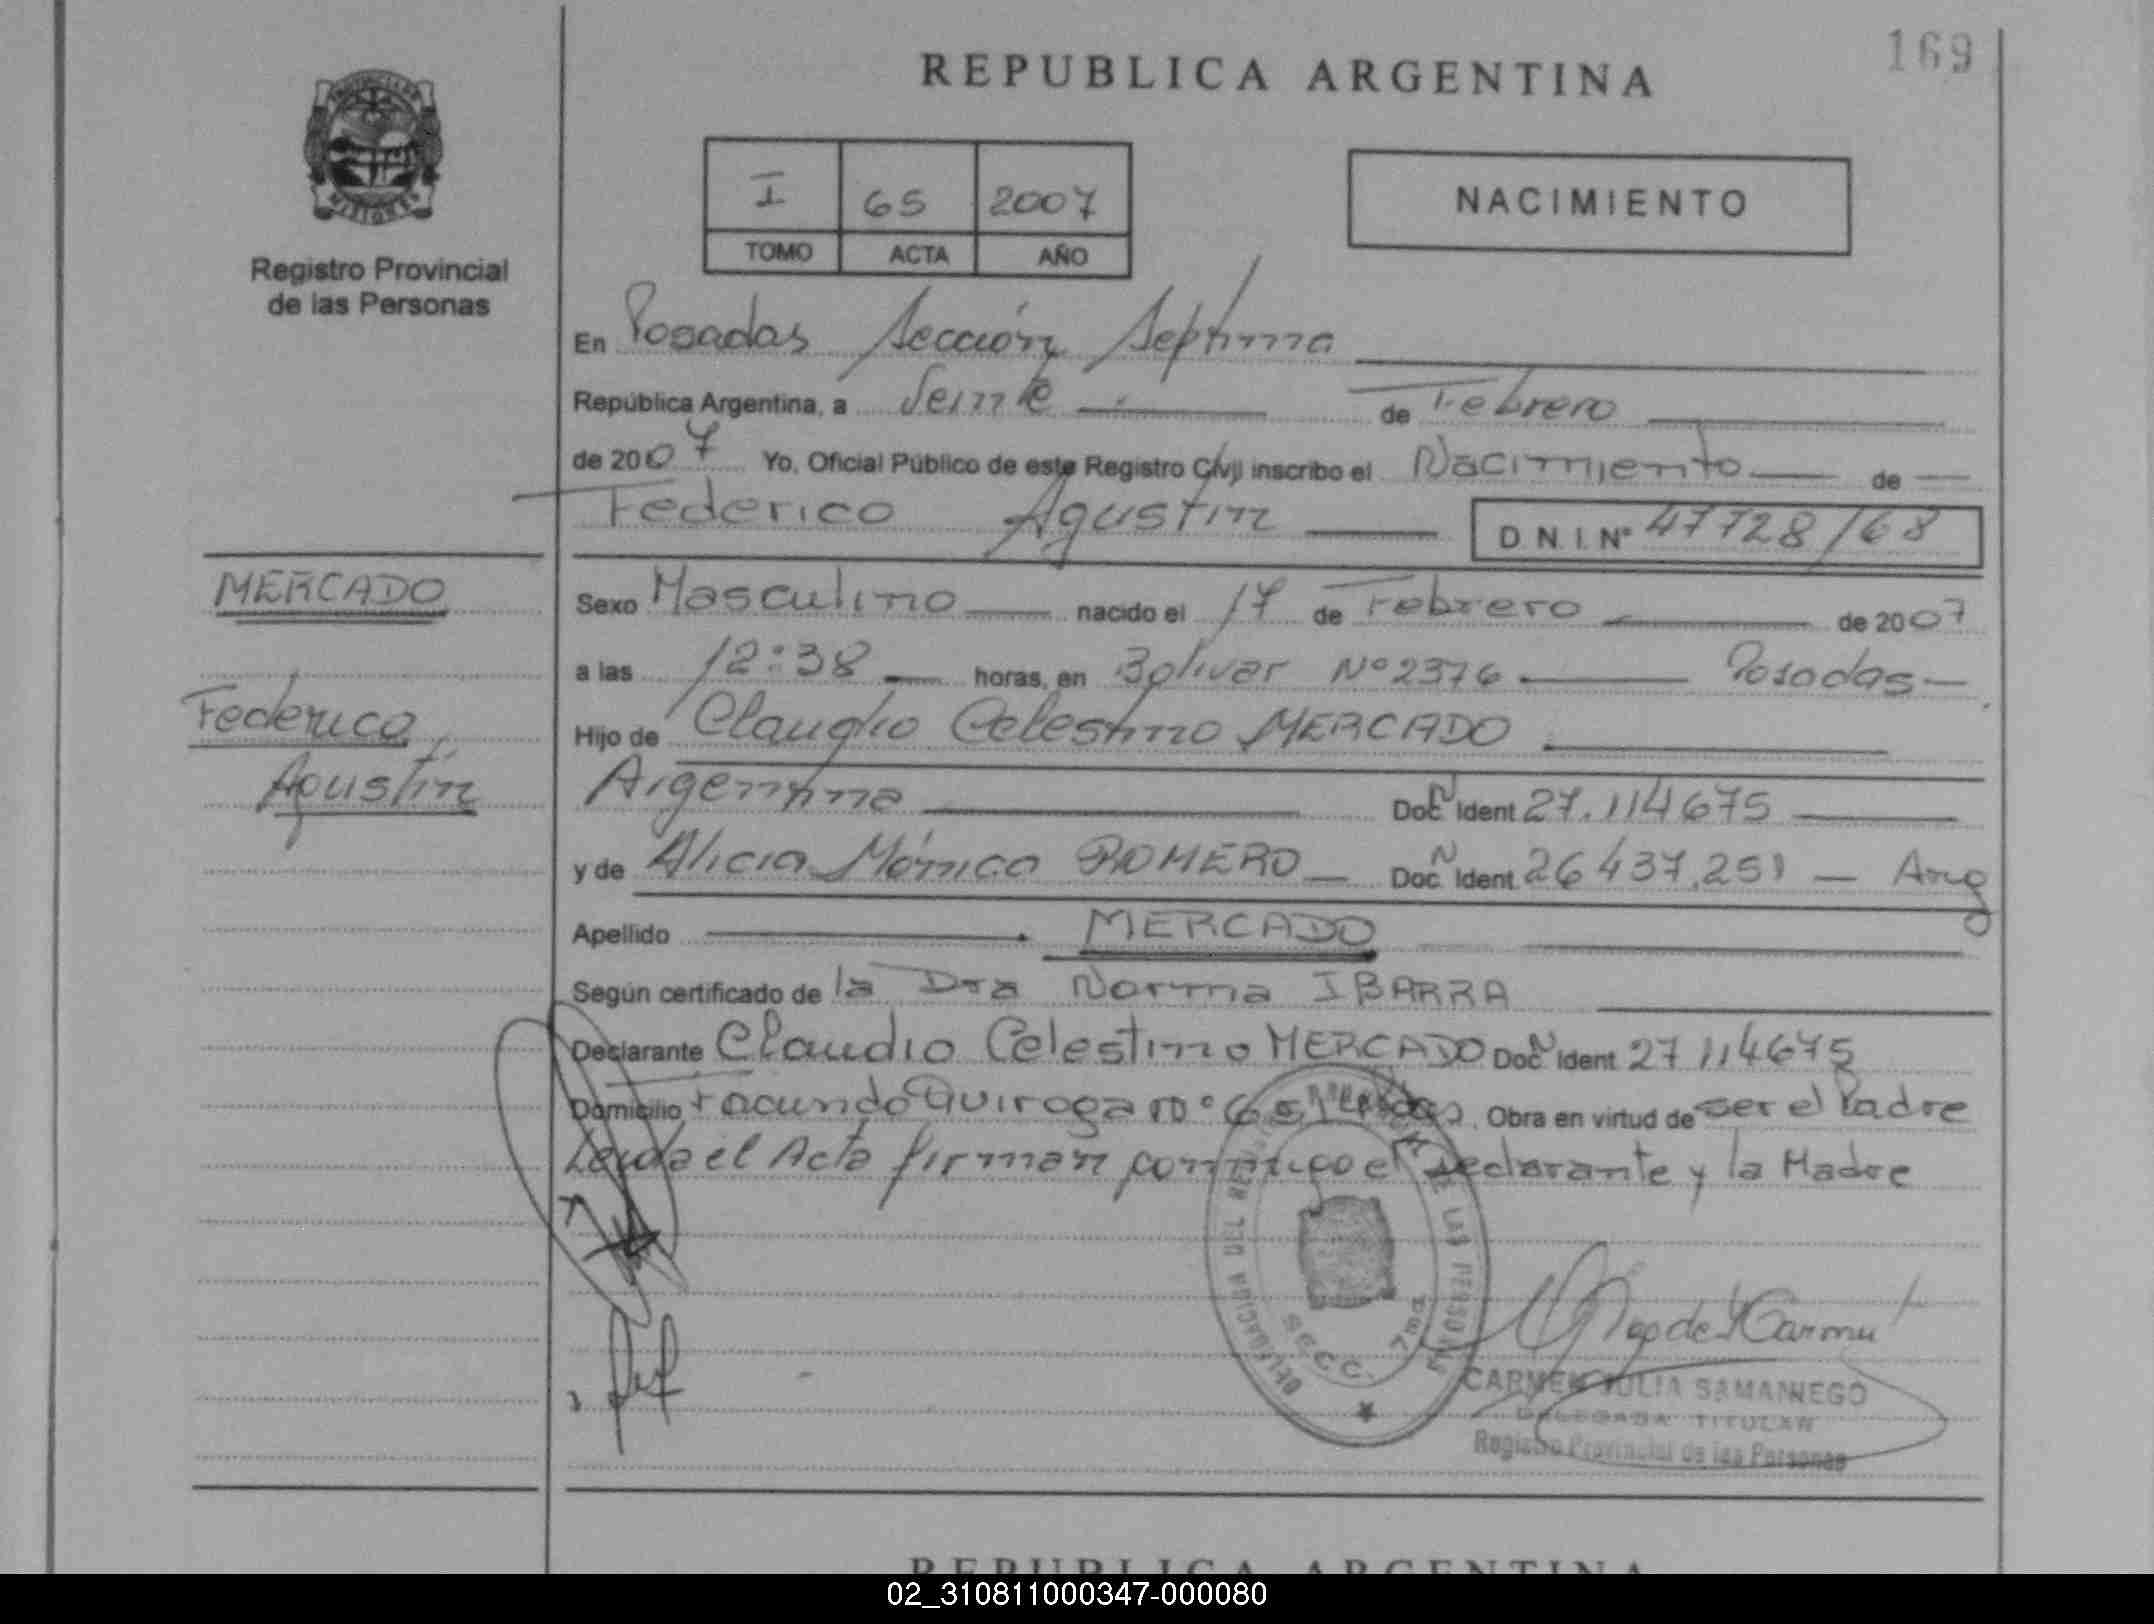 169
REPUBLICA ARGENTINA
PROVINCIA DE
MISIONES
Registro Provincial
de las Personas
I 65 2007
TOMO ACTA AÑO
NACIMIENTO
En Posadas Sección Septima
República Argentina, a Veinte de Febrero
de 2007 Yo, Oficial Público de este Registro Civil inscribo el Nacimiento de
Federico Agustin D.N.I. Nº 47728168
MERCADO
Federico
Agustín
Sexo Masculino nacido el 17 de Febrero de 2007
a las 12:38 horas, en Bolivar Nº 2376 Posadas
Hijo de Claudio Celestino MERCADO
Argentina Doc N Ident 27.114675
y de Alicia Mónica ROMERO Doc N Ident 26437.251 Arg
Apellido MERCADO
Según certificado de la Dra Norma IBARRA
Declarante Claudio Celestino MERCADO Doc N Ident 27114675
Domicilio Facundo Quiroga nº Obra en virtud de ser el Padre
Leida el Acta firman conmigo el Declarante y la Madre
DELEGACIA DEL DE LAS PERSONAS
SECC. 7ma
CARMEN JULIA SAMANIEGO
DELEGADA TITULAR
Registro Provincial de las Personas
REPUBLICA ARGENTINA
02_310811000347-000080